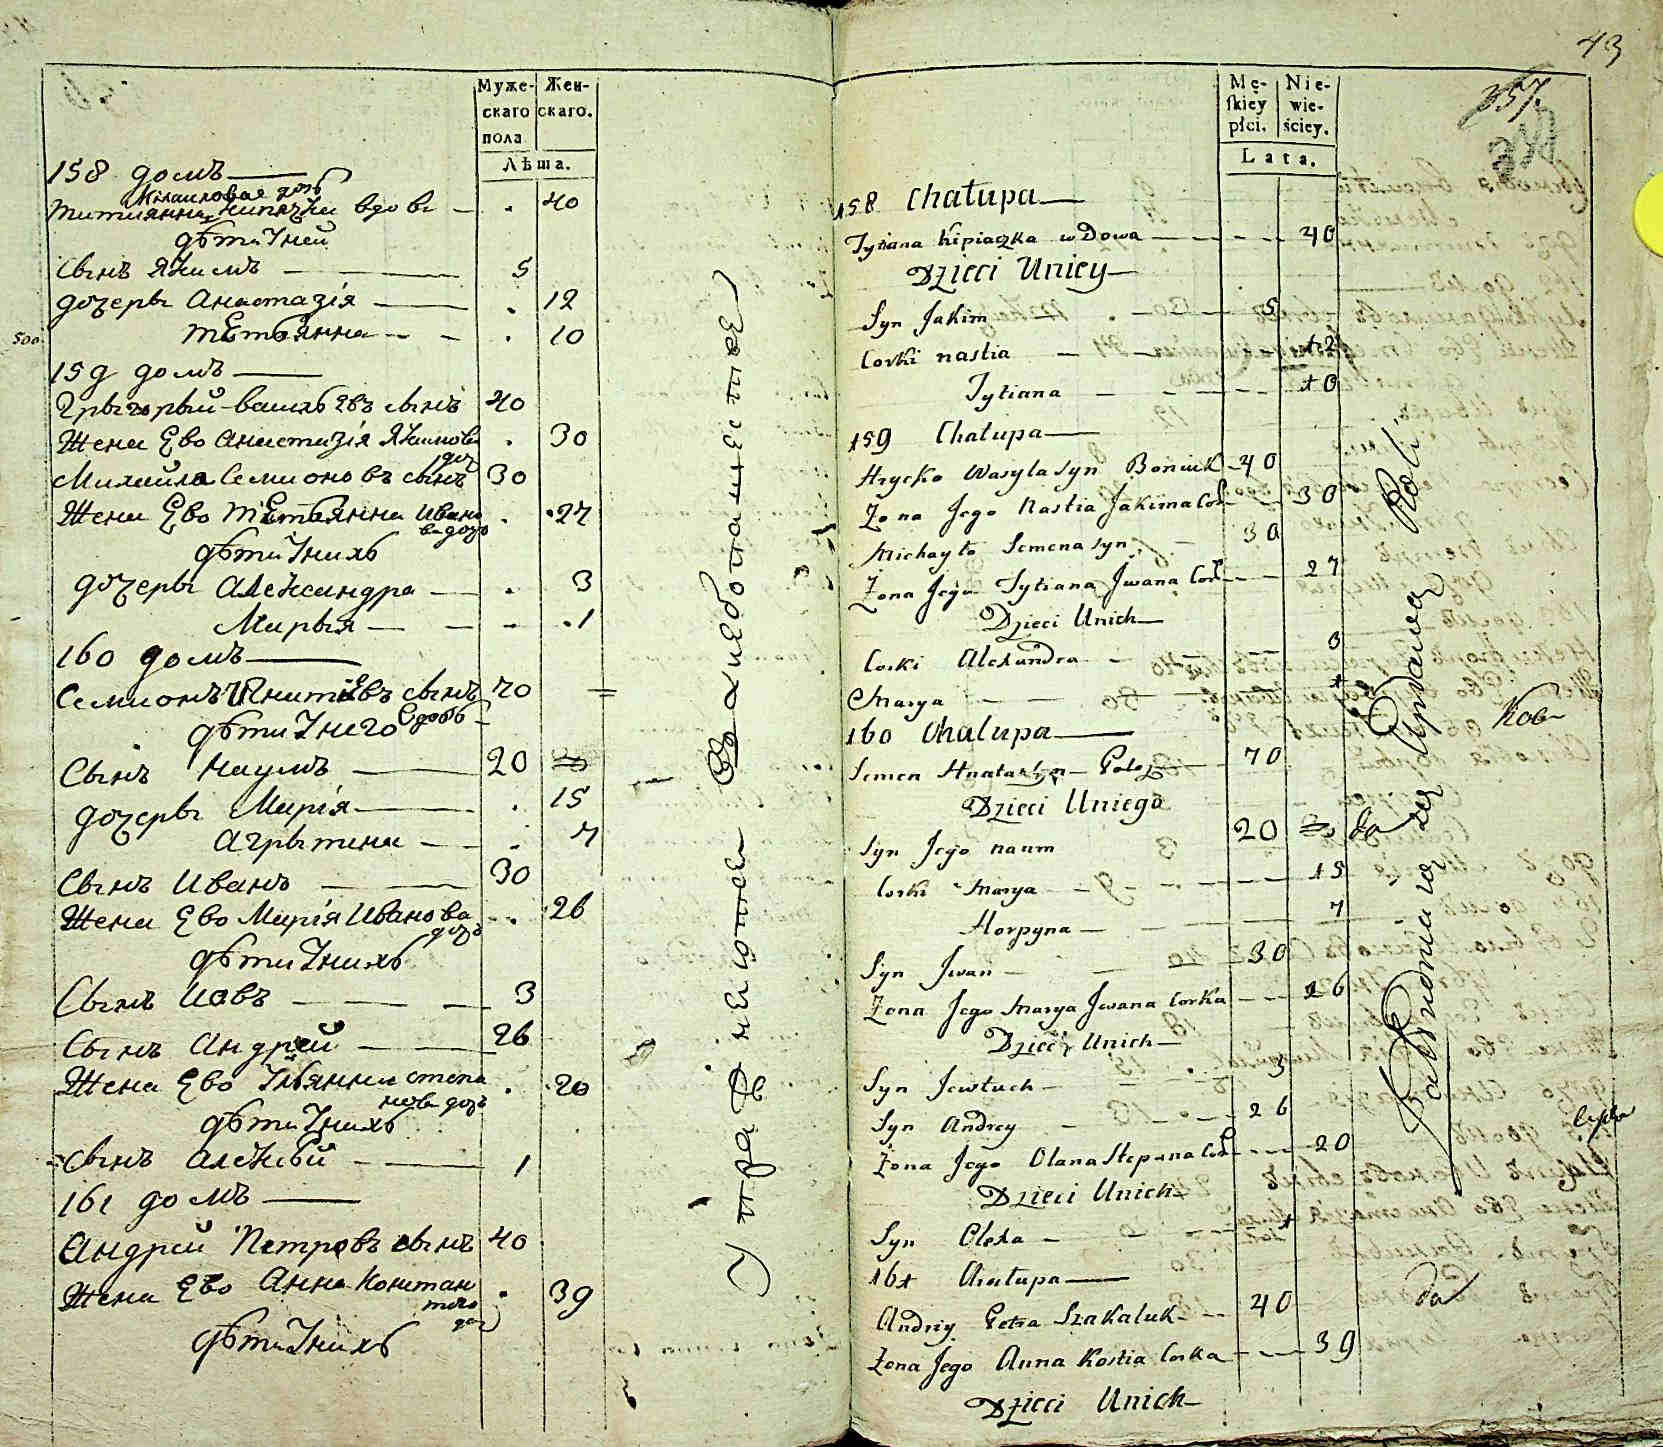 Муже-
скаго
пола
Жен-
скаго.
Лѣта.
158 домъ
Михаиловая дочь
Титиянна Кипячка вдова 40
Дѣти У ней
Сынъ Якимъ 5
дочеры Анастазія 12
Тетьянна 10
500
159 домъ
Грыгорый васильевъ сынъ 40
Жена Ево Анастазія Якимова 30
доч
Михайла Семионовъ сынъ 30
Жена Ево Тетьянна Ивано 27
ва дочь
дѣти У нихъ
дочеры Александра 3
Марыя 1
160 домъ
Семионъ Игнатіевъ сынъ 70
вдовъ
дѣти У него
Сынъ Наумъ 20
дочеры Марія 15
Агрыпина 7
Сынъ Иванъ 30
Жена Ево Марія Иванова 26
дочь
дѣти У нихъ
Сынъ Иовъ 3
Сынъ Андрей 26
Жена Ево Ульянна степа 20
нова дочь
дѣти У нихъ
Сынъ Алексѣй 1
161 домъ
Андрей Петровъ сынъ 40
Жена Ево Анна Констан 39
тего
доч
дѣти У нихъ
43
357.
Mę-
skiey
płci.
Nie-
wie-
ściey.
Lata.
158 Chałupa
Tytiana Kipiaczka wdowa 40
Dzieci Unicy
Syn Jakim 5
Corki nastia 12
Tytiana 10
159 Chałupa
Hrycko Wasyla syn Boniuk 40
Żona Jego Nastia Jakima Cor 30
Michayło Semena syn 30
Żona Jego Tytiana Jwana Cor 27
Dzieci Unich
Corki Alexandra 3
Marya 1
160 Chałupa
Semen Hnata syn 70
Dzieci Uniego
Syn Jego naum 20
Corki Marya 15
Horpyna 7
Syn Jwan 30
Żona Jego Marya Jwana Corka 26
Dzieci Unich
Syn Jewtuch 3
Syn Andrey 26
Żona Jego Olana Stepana Cor 20
Dzieci Unich
Syn Olexa 1
161 Chałupa
Andriy Petra Szakaluk 40
Żona Jego Anna Kostia Corka 39
Dzieci Unich